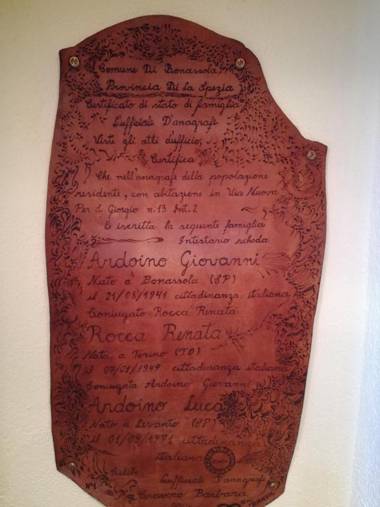 Comune Di Bonassola
Provincia Di La Spezia
Certificato di stato di famiglia
L'ufficiale D'anagrafe
Visti gli atti d'ufficio,
Certifica
Che nell'anagrafe della popolazione
residenti, con abitazione in Via Nuova
Per S. Giorgio n. 13 Int. 2
è iscritta la seguente famiglia
Intestario scheda
Ardoino Giovanni
Nato a Bonassola (SP)
il cittadinanza italiana
Coniugato Rocca Renata
Rocca Renata
Nata a Torino (TO)
il cittadinanza italiana
Coniugata Ardoino Giovanni
Ardoino Luca
Nato a Levanto (SP)
il cittadinanza
italiana
L'ufficiale D'anagrafe
Barbara